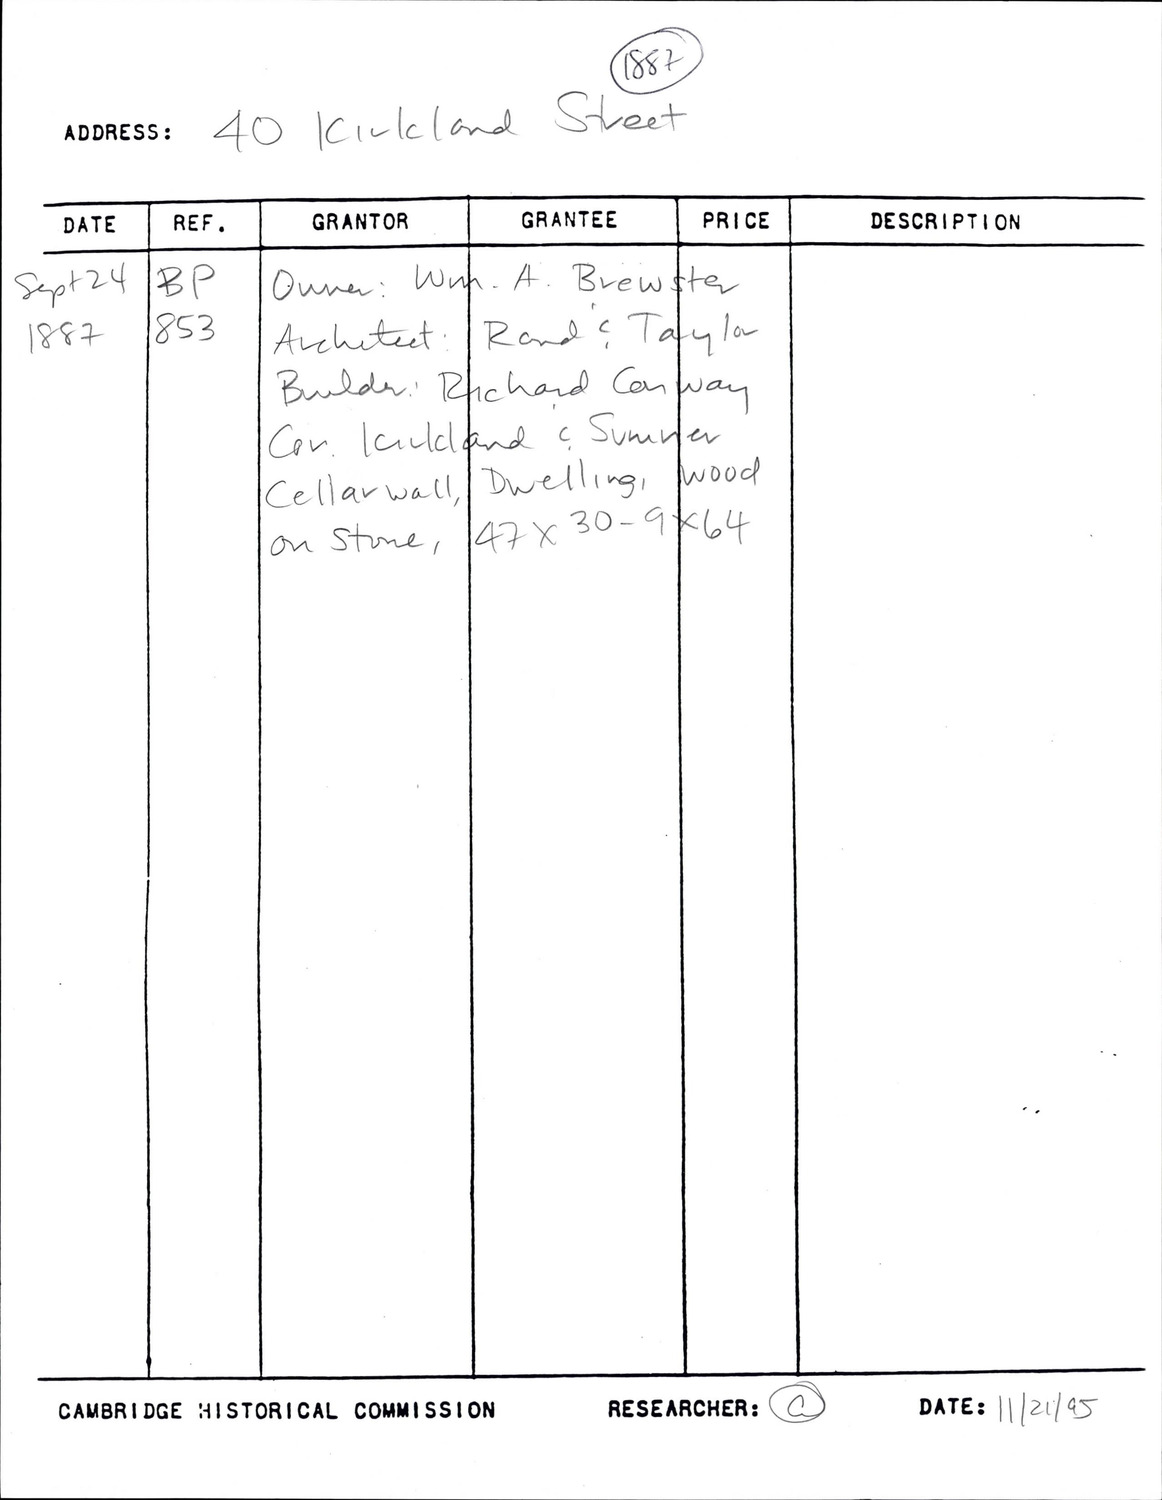 1887
ADDRESS: 40 Kirkland Street
DATE REF. GRANTOR GRANTEE PRICE DESCRIPTION
Sept 24 BP Owner: Wm. A. Brewster
1887 853 Architect: Rand & Taylor
Builder: Richard Conway
Cor. Kirkland & Sumner
Cellarwall, Dwelling, wood
on stone, 47 x 30-9 x 64
CAMBRIDGE HISTORICAL COMMISSION RESEARCHER: a DATE: 11/21/95